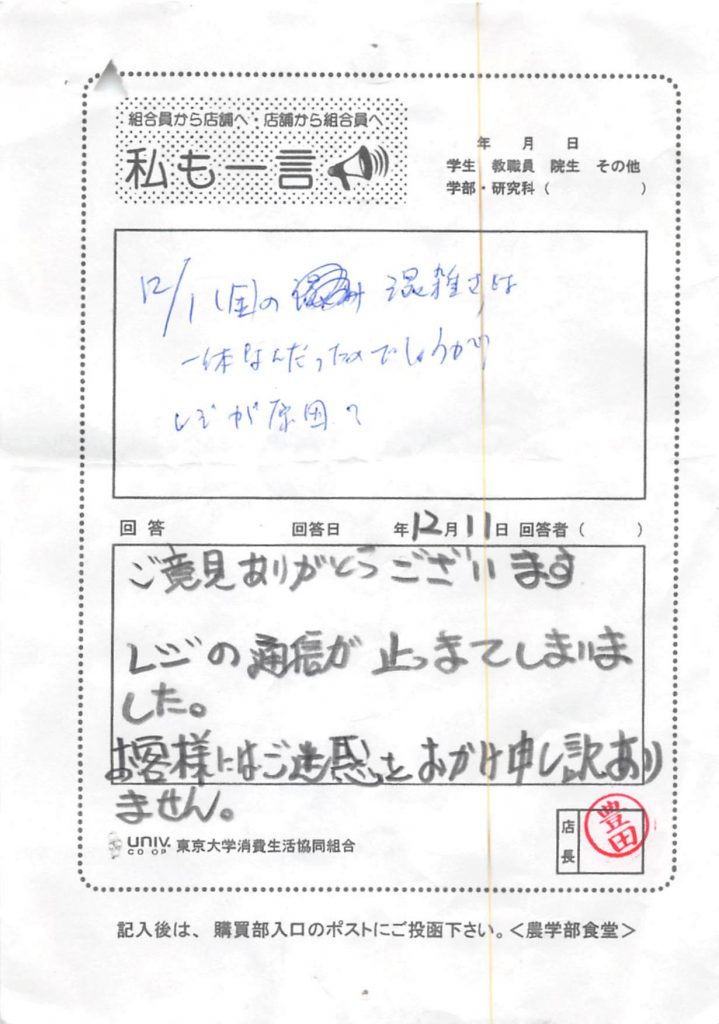 組合員から店舗へ・店舗から組合員へ
私も一言
年 月 日
学生 教職員 院生 その他
学部・研究科（ ）
12/1(金)の 混雑さは
一体なんだったのでしょうか?
レジが原因?
回答 回答日 年12月11日 回答者（ ）
ご意見ありがとうございます
レジの通信が止っまてしまいま
した。
お客様にはご迷惑をおかけ申し訳あり
ません。
店長 豊田
UNIV. CO-OP 東京大学消費生活協同組合
記入後は、購買部入口のポストにご投函下さい。＜農学部食堂＞